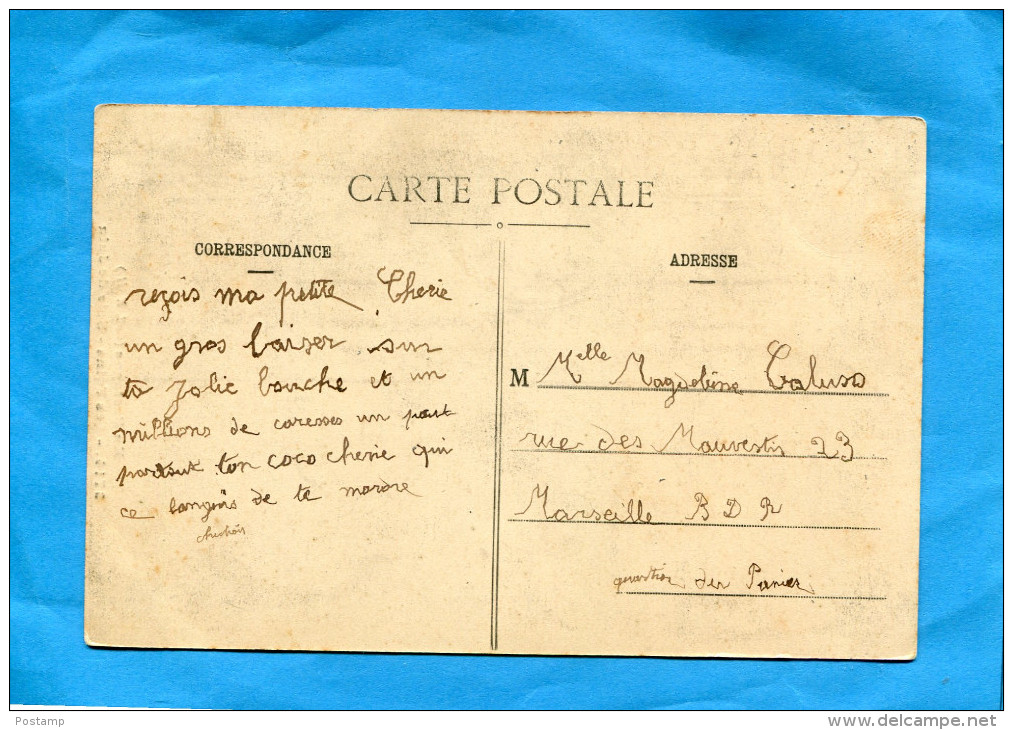 CARTE POSTALE
CORRESPONDANCE
reçois ma petite Cherie
un gros baiser sur
ta Jolie bouche et un
millions de caresses un peut
partout ton coco cherie qui
ce langois de te mordre
ADRESSE
M Melle Magdeleine Caluso
rue des Mauvestis 23
Marseille B D R
quartier du Panier
Postamp
www.delcampe.net